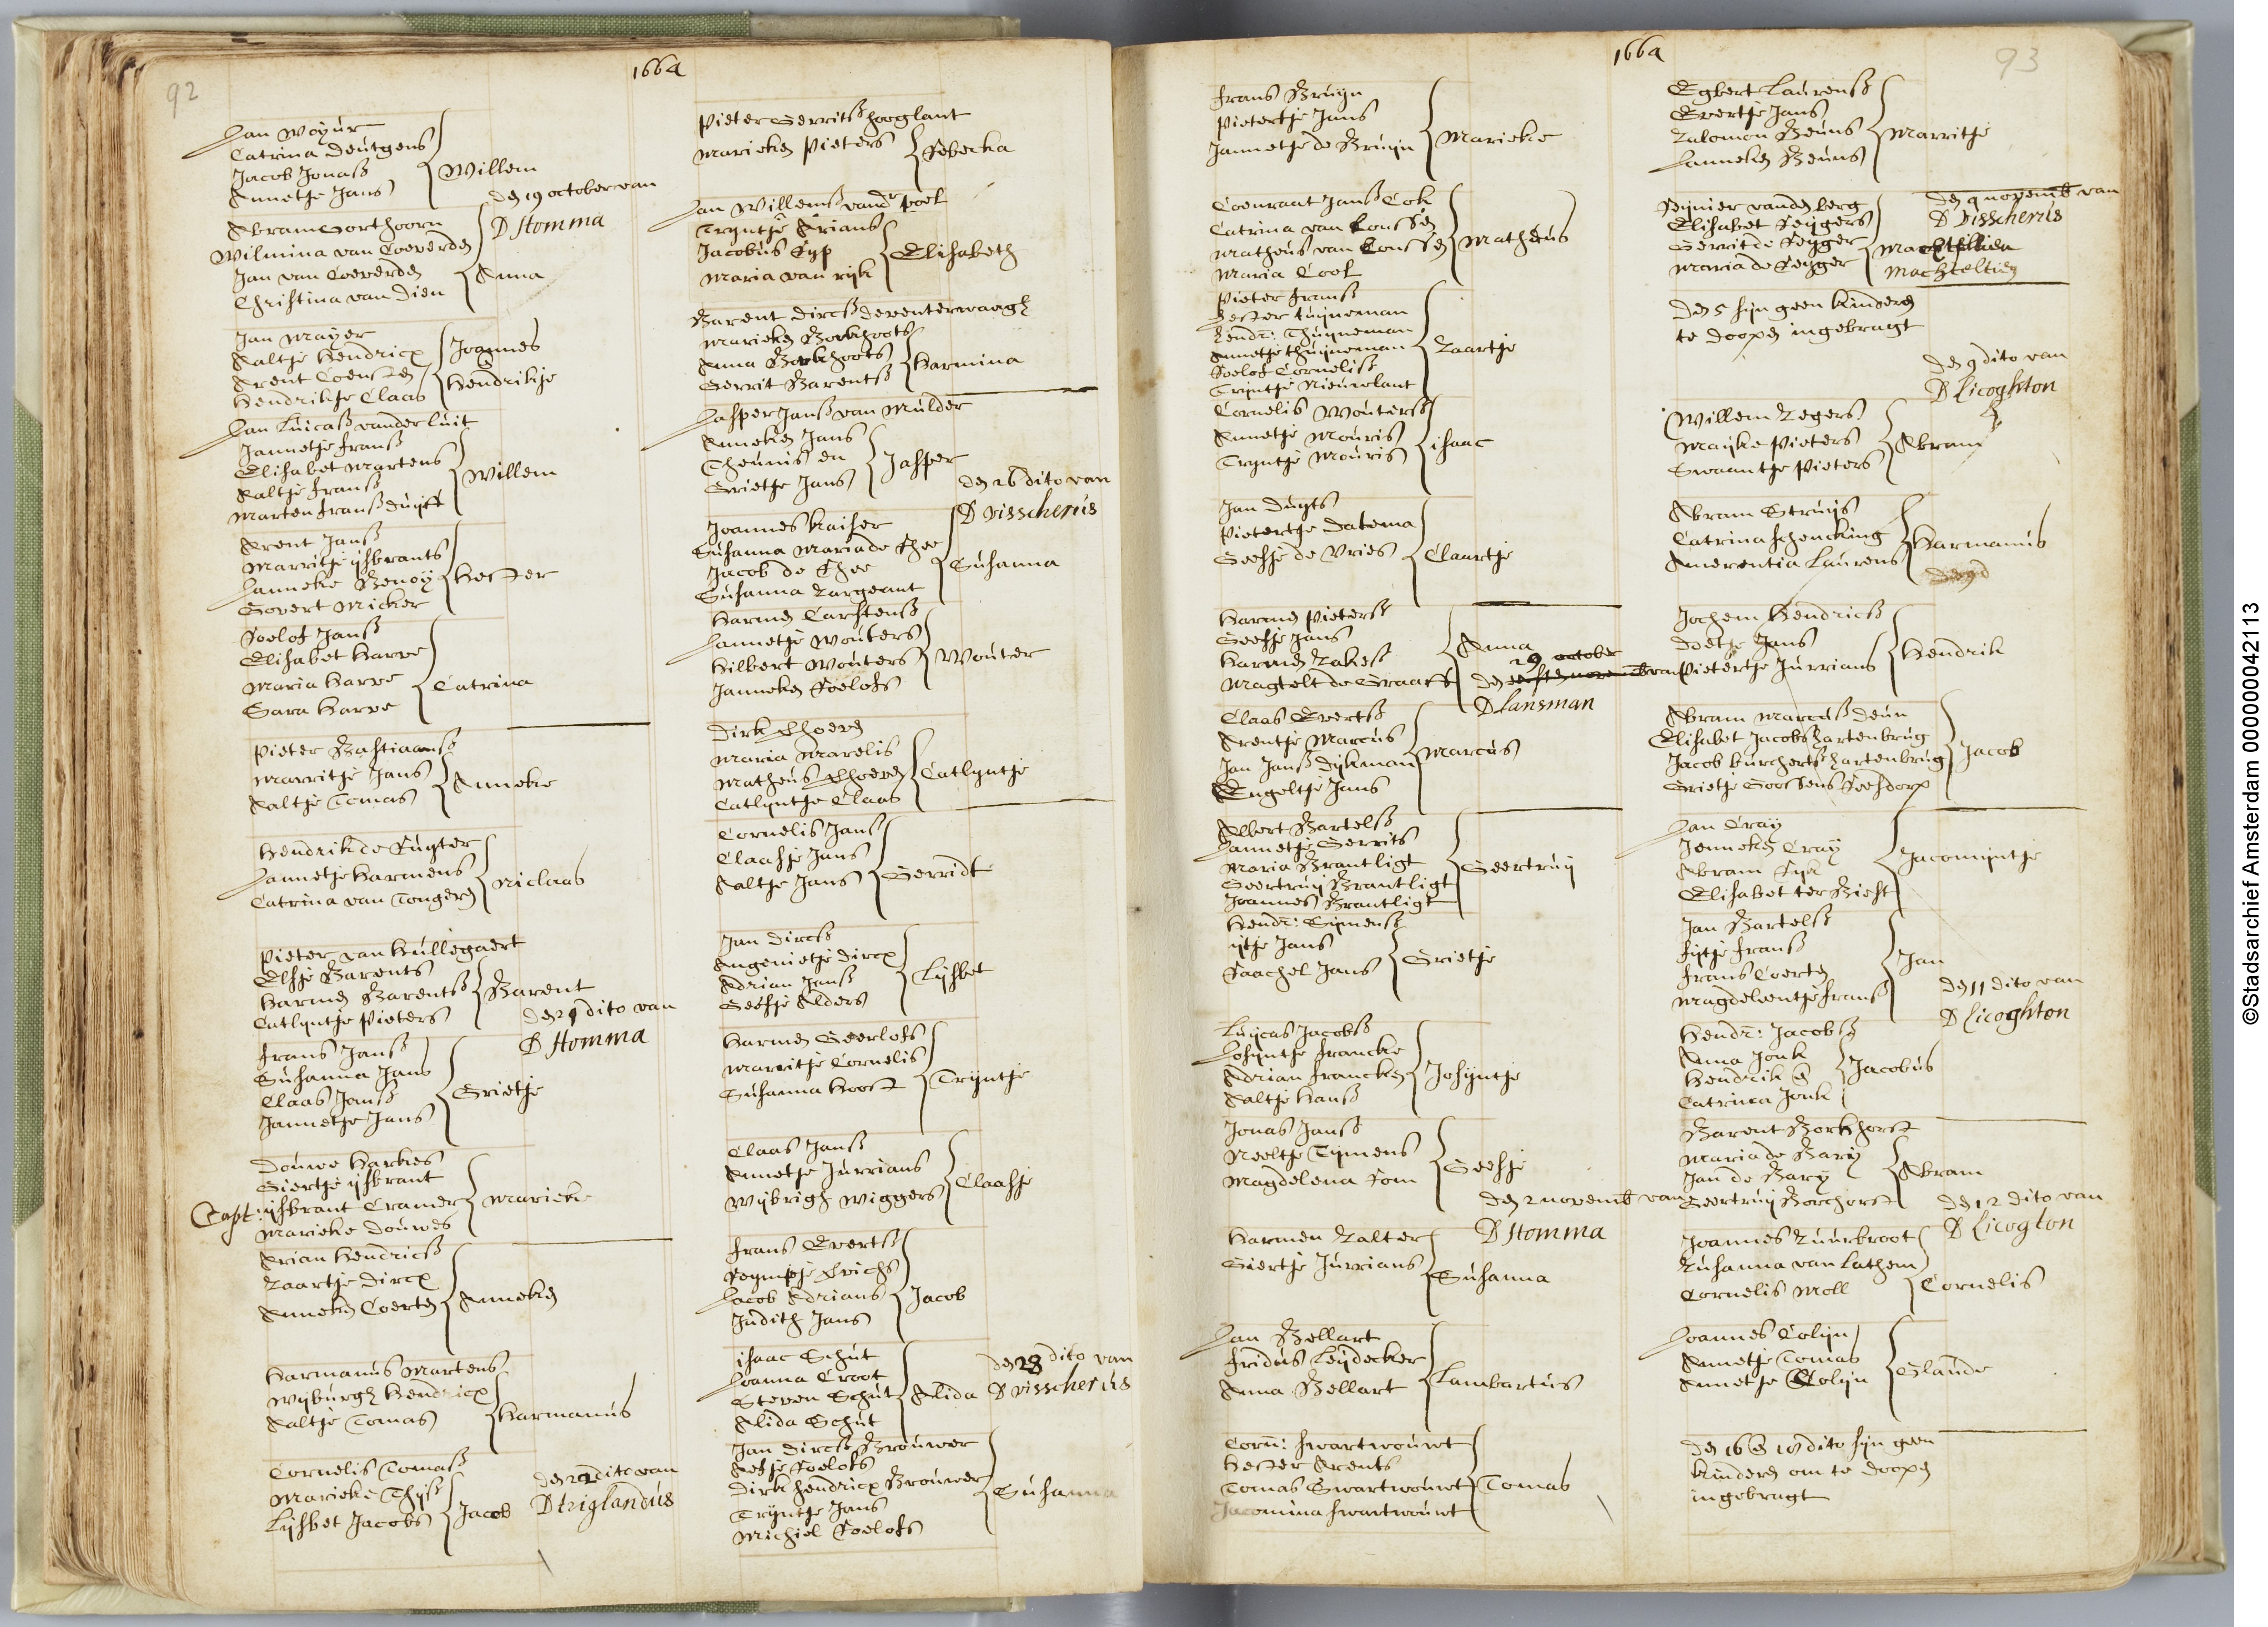 92
1664
Jan Moyur
Catrina Deutgens
Jacob Jonass
Annetje Jans
Willem
den 19 october van
D Homma
Abram Oorthoorn
Wilmina van Coeverden
Jan van Coeverden
Christina van Dien
Anna
Jan Mayer
Aaltje Hendricx
Arent Coensten
Hendrikje Claas
Joannes
Hendrikje
Jan Luicass vander Luit
Jannetje Franss
Elisabet Martens
Aaltje Franss
Marten Franss Duyff
Willem
Arent Janss
Marritje ijsbrants
Janneke Benoy
Govert Micker
Hester
Roelof Janss
Elisabet Harpe
Maria Harpe
Sara Harpe
Catrina
Pieter Bastiaanss
Marritje Jans
Aaltje Tomas
Anneke
Hendrik de Rugter
Jannetje Harmens
Catrina van Tongeren
Niclaas
Pieter van Hullegaert
Elsje Barents
Harmen Barentss
Catlyntje Pieters
Barent
den 21 dito van
D Homma
Frans Janss
Susanna Jans
Claas Janss
Jannetje Jans
Grietje
Douwe Harkes
Giertje ijsbrant
Capt: ijsbrant Cramer
Marieke Douwes
Marieke
Arian Hendricss
Zaartje Dircx
Anneken Coerten
Anneken
Harmanus Martens
Wyburgh Hendricx
Aaltje Tomas
Harmanus
Cornelis Tomass
Marieke Thyss
Lysbet Jacobs
Jacob
den 22 dito van
D triglandus
Pieter Gerritss Hooglant
Marieken Pieters
Rebecka
Jan Willemss vandr Poel
Tryntje Arians
Jacobus Ryp
Maria van rijk
Elisabeth
Barent Dircss deventerwaegh
Marieken Borkhoots
Anna Borkhoots
Gerrit Barentss
Harmina
Jasper Janss van Mulder
Anneken Jans
Theunis en
Grietje Jans
Jasper
den 26 dito van
D visscherus
Joannes Kaiser
Susanna Maria de Rhee
Jacob de Rhee
Susanna Targeant
Susanna
Harmen Carstenss
Jannetje Wouters
Hilbert Wouters
Janneken Roelofs
Wouter
Dirk
Maria Marelis
Matheus
Catlyntje Claas
Catlyntje
Cornelis Janss
Claasje Jans
Aaltje Jans
Gerridt
Jan Dircss
Angenietje Dircx
Adrian Janss
Geesje Alders
Lysbet
Harmen Geerlofs
Marritje Cornelis
Susanna Hooft
Tryntje
Claas Janss
Annetje Jurrians
Wybrigh Wiggers
Claasje
Frans Evertss
Reympje Frichs
Jacob Adrians
Judith Jans
Jacob
isaac Schut
Joanna Croot
Steven Schut
Alida Schut
Alida
den 28 dito van
D visscherus
Jan Dircss Brouwer
Aefje Roelofs
Dirk Hendricx Brouwer
Tryntje Jans
Michiel Roelofs
Susanna
1664
93
Frans Bruyn
Pietertje Jans
Jannetje de Bruyn
Marieke
Coenraat Janss Cok
Catrina van Loussen
Matheus van Loussen
Maria Cool
Matheus
Pieter Franss
Hester tuyneman
Hendr: Thuyneman
Annetje Thuyneman
Roelof Corneliss
Tryntje Nieuwlant
Zaartje
Cornelis Wouterss
Annetje Mouris
Tryntje Mouris
isaac
Jan Duyts
Pietertje Datema
Geesje de Vries
Claartje
Harmen Pieterss
Geesje Jans
Harmen Takess
Magtelt de Graaff
Anna
29 october
den eersten novemb van
D Lansman
Claas Evertss
Arentje Marcus
Jan Janss Dykman
Engeltje Jans
Marcus
Albert Bartelss
Jannetje Gerrits
Maria Brantligt
Geertruy Brantligt
Joannes Brantligt
Geertruy
Hendr: Symenss
ytje Jans
Raachel Jans
Grietje
Luycas Jacobss
Josyntje Francke
Adrian Francken
Aaltje Hanss
Josyntje
Jonas Janss
Neeltje Tymens
Magdelena Rom
Geesje
den 2 novemb van
D Homma
Harmen Zalter
Giertje Jurrians
Susanna
Jan Bellart
Fridus Leydecker
Anna Bellart
Lambartus
Corn: Swartwouwt
Hester Arents
Tomas Swartwouwt
Jacomina Swartwouwt
Tomas
Egbert Laurenss
Evertje Jans
Zalomon Beuns
Janneken Beuns
Marritje
den 4 novemb van
D Visscherus
Reynier vanden berg
Elisabet Reygers
Gerrit de Reyger
Maria de Reyger
Machteltien
den 5 syn geen kinderen
te doopen ingebragt
den 9 dito van
D Licoghton
Willem Zegers
Mayke Pieters
Swaantje Pieters
Abram
Abram Struys
Catrina Schencking
Amerentia Laurens
Harmanus
Jochem Hendricss
Doetje Jans
Pietertje Jurrians
Hendrik
Abram Marcuss Deun
Elisabet Jacobs Hartenbrug
Jacob Burchertss Hartenbrug
Grietje Goossens Reesdorp
Jacob
Jan Cray
Jenneken Cray
Abram Ryk
Elisabet ter Biest
Jacomyntje
Jan Bartelss
Fytje Franss
Frans Coerten
Magdelentje Franss
Jan
den 11 dito van
D Licoghton
Hendr: Jacobss
Anna Jonk
Hendrik en
Catrina Jonk
Jacobus
Barent Borkhorst
Maria de Bary
Jan de Bary
Geertruy Borchorst
Abram
den 12 dito van
D Licogton
Joannes Zuurbroot
Zusanna van Lathem
Cornelis Moll
Cornelis
Joannes Colyn
Annetje Tomas
Annetje Colyn
Glaude
den 16 en 18 dito syn geen
kinderen om te doopen
ingebragt
©Stadsarchief Amsterdam 000000042113